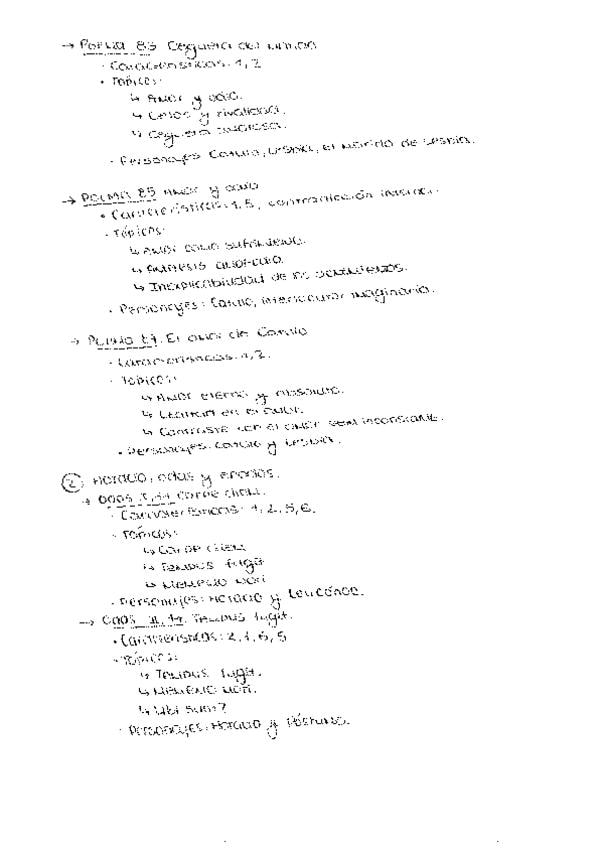 → Poema 83. Ceguera del marido
· Características: 1, 2
· Tópicos:
↳ Amor y odio.
↳ Celos y rivalidad.
↳ Ceguera amorosa.
· Personajes: Catulo, Lesbia, el marido de Lesbia.
→ Poema 85 Amor y odio
· Características: 1, 5, contradicción
· Tópicos:
↳ Amor como sufrimiento.
↳ Antítesis amor-odio.
↳ Inexplicabilidad de los sentimientos.
· Personajes: Catulo, interlocutor imaginario.
→ Poema 87. El amor de Catulo
· Características: 1, 2.
· Tópicos:
↳ Amor eterno y absoluto.
↳ Lealtad en el amor.
↳ Contraste con el amor inconstante.
· Personajes: Catulo y Lesbia.
② Horacio, odas y epodos.
→ Odas I, 11. Carpe diem.
· Características: 1, 2, 5, 6.
· Tópicos:
↳ Carpe diem
↳ Tempus fugit
↳ Memento mori
· Personajes: Horacio y Leucónoe.
→ Odas II, 14. Tempus fugit.
· Características: 2, 1, 6, 5
· Tópicos:
↳ Tempus fugit.
↳ Memento mori.
↳ Ubi sunt?
· Personajes: Horacio y Póstumo.